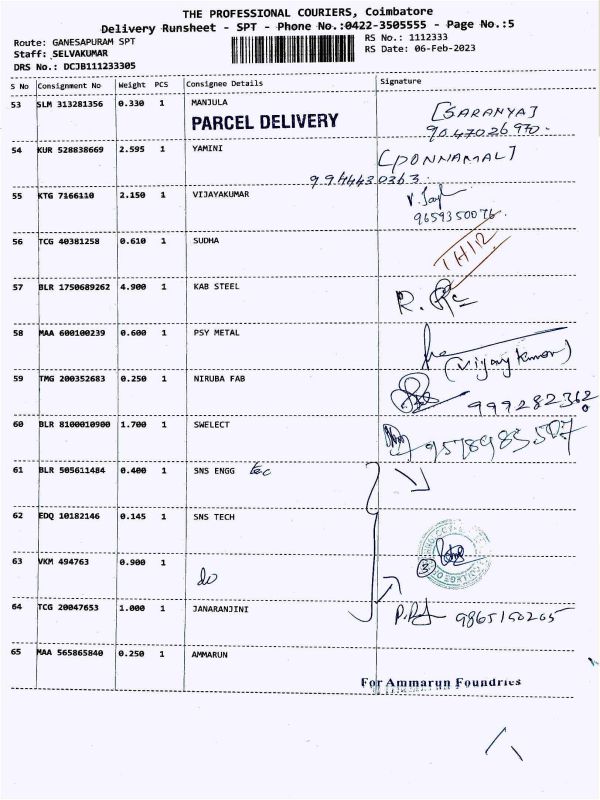 THE PROFESSIONAL COURIERS, Coimbatore
Delivery Runsheet - SPT - Phone No.:0422-3505555 - Page No.:5
Route: GANESAPURAM SPT
RS No.: 1112333
Staff: SELVAKUMAR
RS Date: 06-Feb-2023
DRS No.: DCJB111233305
S No Consignment No Weight PCS Consignee Details Signature
53 SLM 313281356 0.330 1 MANJULA
[SARANYA]
PARCEL DELIVERY
9047026970.
54 KUR 528838669 2.595 1 YAMINI
[PONNAMAL]
9944430363.
55 KTG 7166110 2.150 1 VIJAYAKUMAR
9659350076.
56 TCG 40381258 0.610 1 SUDHA
57 BLR 1750689262 4.900 1 KAB STEEL
58 MAA 600100239 0.600 1 PSY METAL
(Vijaykumar)
59 TMG 200352683 0.250 1 NIRUBA FAB
999282362
60 BLR 8100010900 1.700 1 SWELECT
9578985507
61 BLR 505611484 0.400 1 SNS ENGG tec
62 EDQ 10182146 0.145 1 SNS TECH
63 VKM 494763 0.900 1
do
3
64 TCG 20047653 1.000 1 JANARANJINI
9865150205
65 MAA 565865840 0.250 1 AMMARUN
For Ammarun Foundries